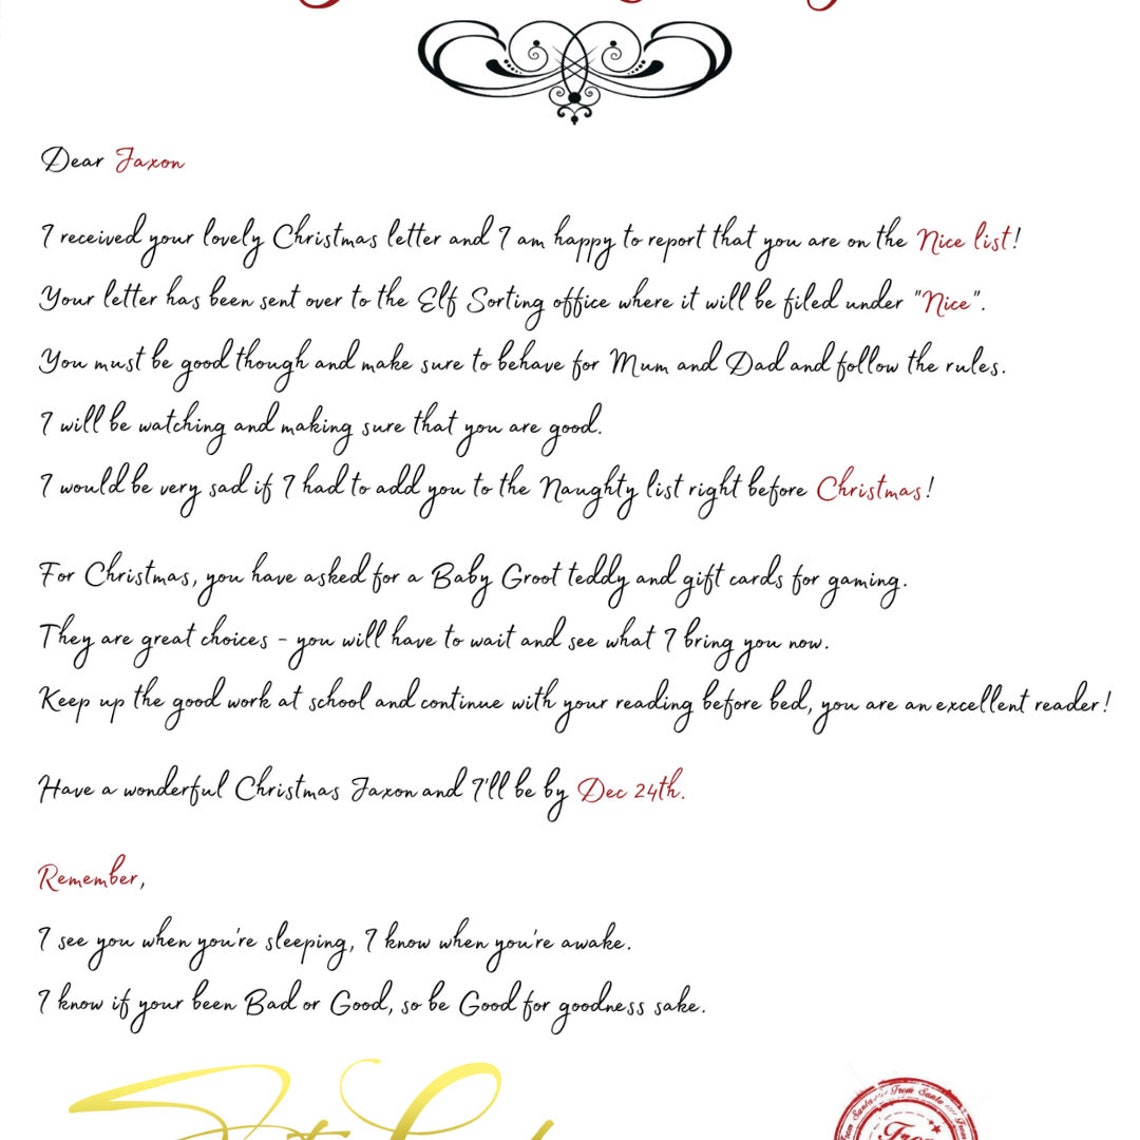 Dear Jaxon
I received your lovely Christmas letter and I am happy to report that you are on the Nice list!
Your letter has been sent over to the Elf Sorting office where it will be filed under "Nice".
You must be good though and make sure to behave for Mum and Dad and follow the rules.
I will be watching and making sure that you are good.
I would be very sad if I had to add you to the Naughty list right before Christmas!
For Christmas, you have asked for a Baby Groot teddy and gift cards for gaming.
They are great choices - you will have to wait and see what I bring you now.
Keep up the good work at school and continue with your reading before bed, you are an excellent reader!
Have a wonderful Christmas Jaxon and I'll be by Dec 24th.
Remember,
I see you when you're sleeping, I know when you're awake.
I know if your been Bad or Good, so be Good for goodness sake.
From Santa